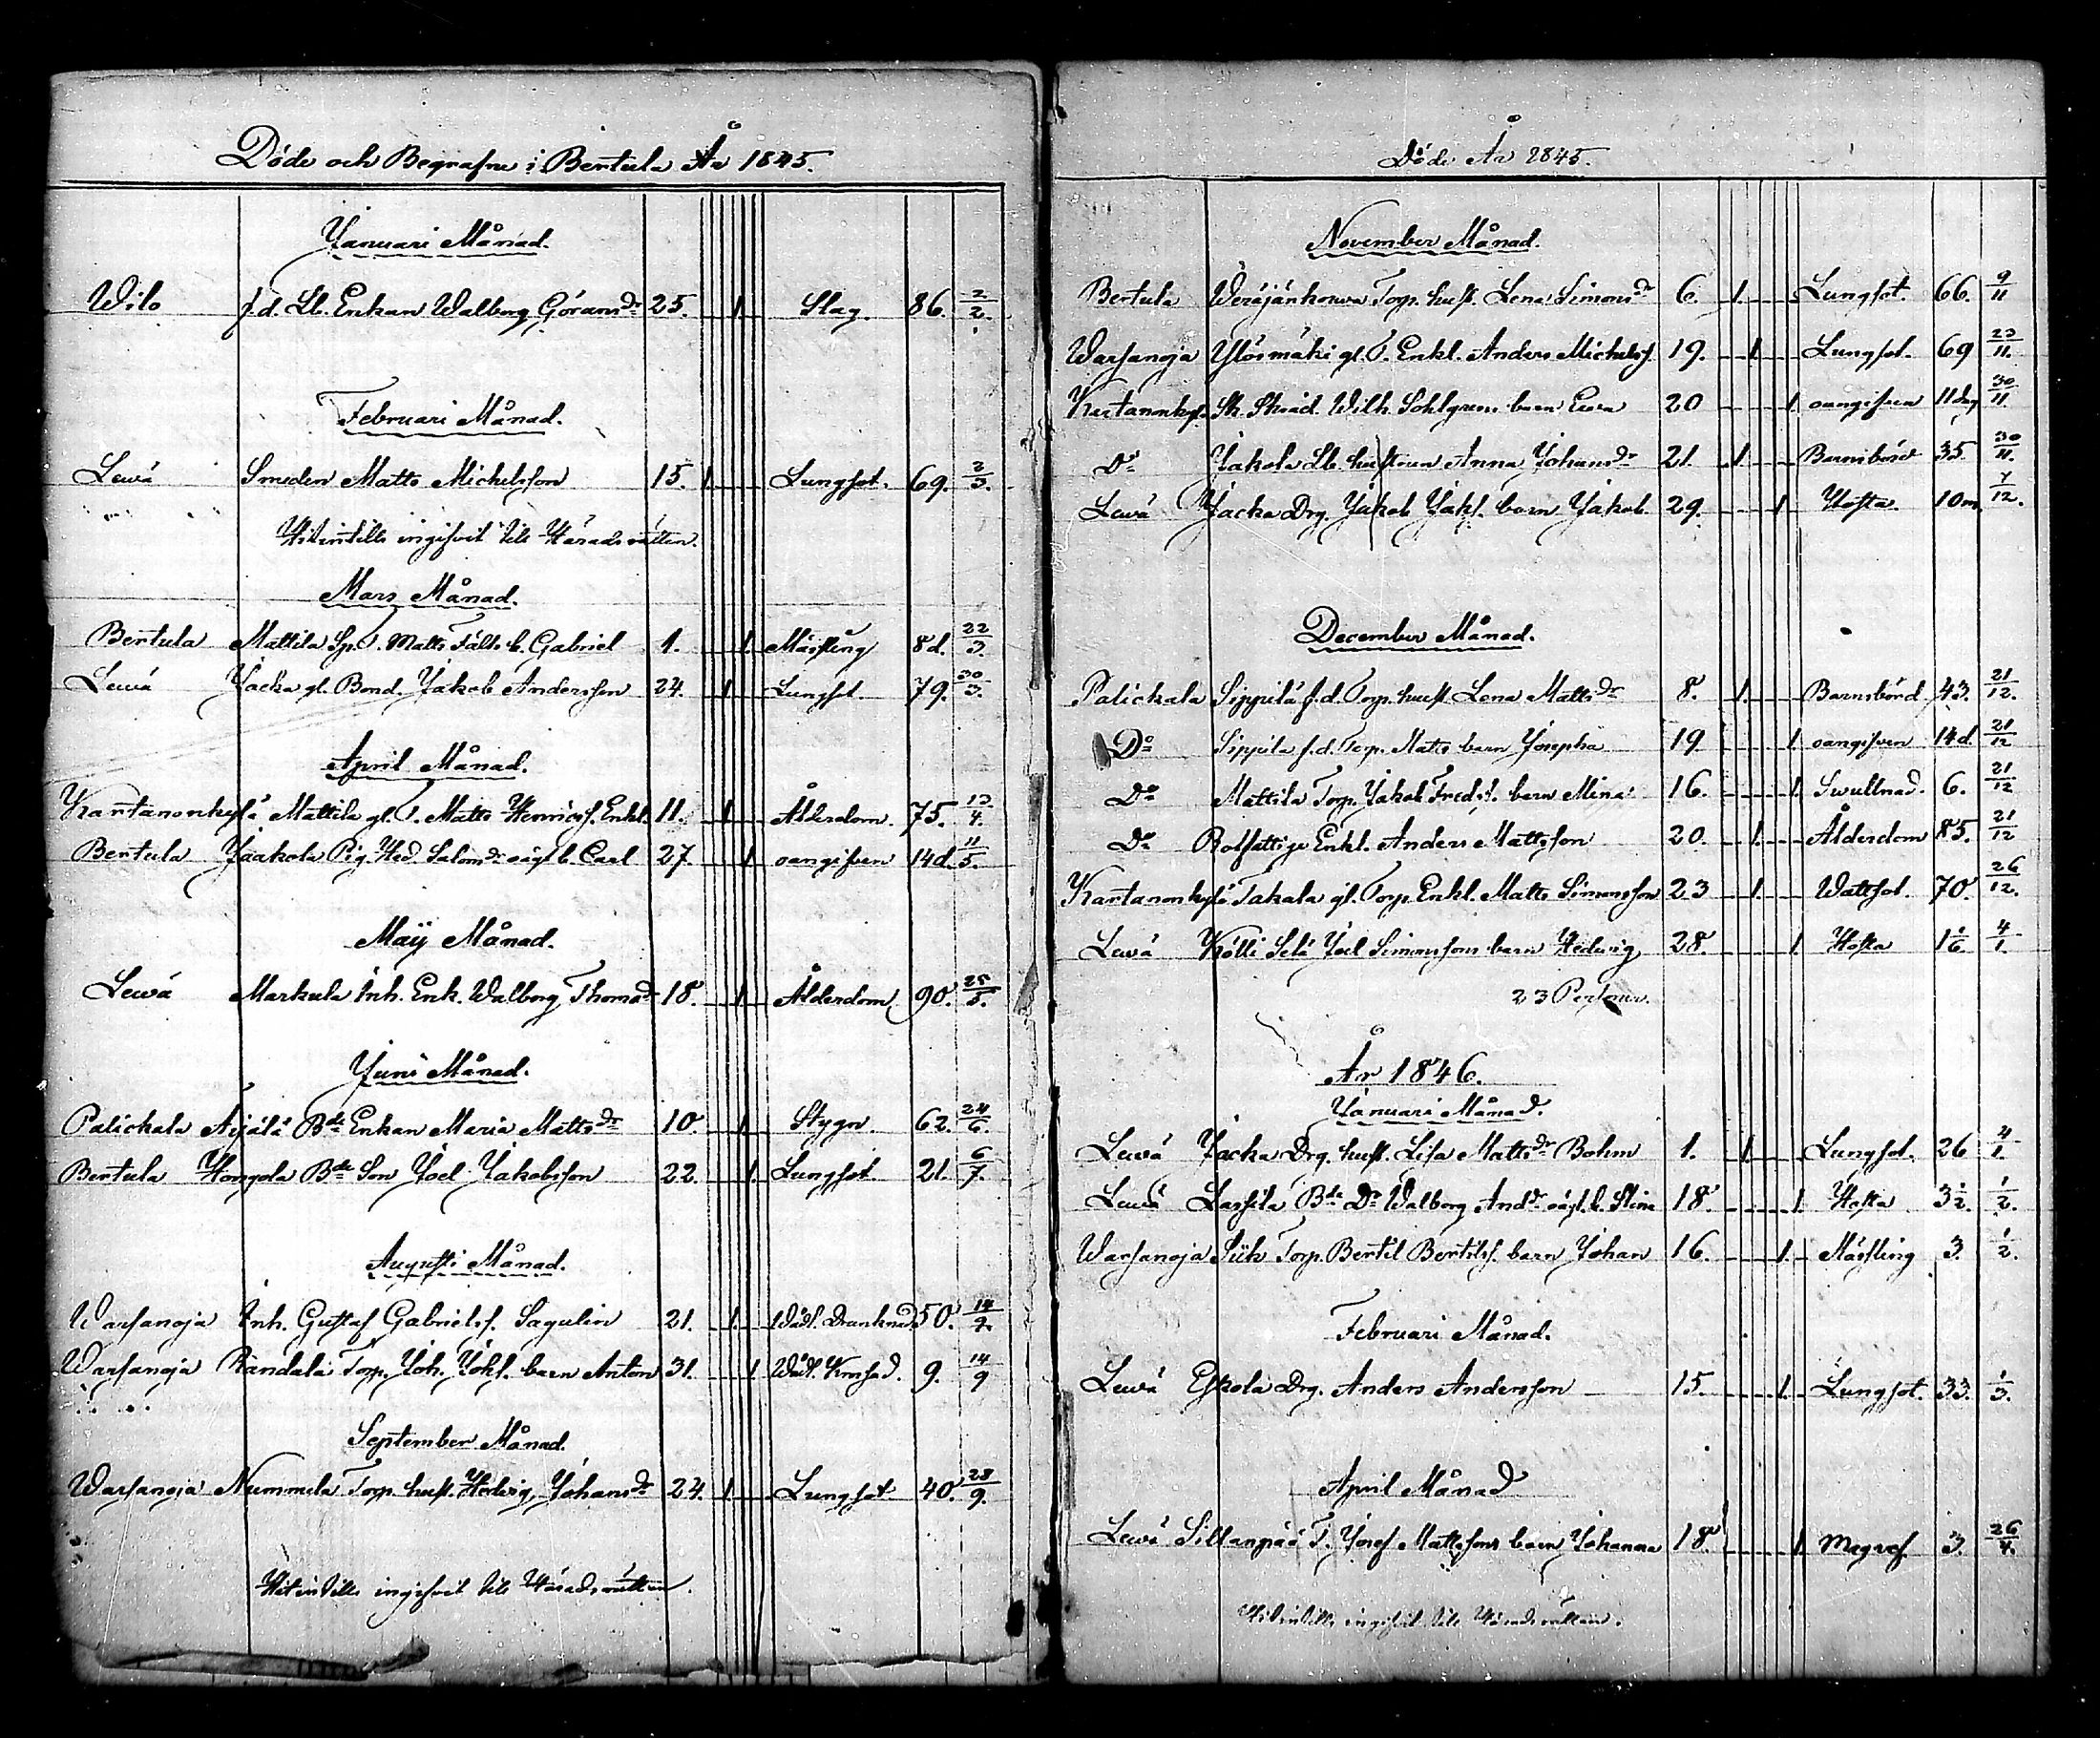 Döde och Begrafne i Bertula År 1845.
Januari Månad.
Wilo f.d. Lb. Enkan Walborg Göransdr 25. 1. Slag. 86. 2/2.
Februari Månad.
Lewä Smeden Matts Michelsson 15. 1. Lungsot. 69. 2/3.
Hitintills ingifvit till Häradsrätten.
Mars Månad.
Bertula Mattila Sp. T. Matts Fält. b. Gabriel 1. 1. Mässling 8d. 22/3.
Lewä Jacka gl. Bond. Jakob Andersson 24. 1. Lungsot. 79. 30/3.
April Månad.
Kartanonkylä Mattila gl. T. Matts Henricss. Enkl. 11. 1. Ålderdom. 75. 13/4.
Bertula Jaakola Pig. Hed. Salomdr oägt b. Carl 27. 1. oangifven 14d. 11/5.
Maij Månad.
Lewä Markula Inh. Enk. Walborg Thomadr 18. 1. Ålderdom. 90. 25/5.
Juni Månad.
Palickala Äijälä Bde Enkan Maria Mattsdr 10. 1. Stygn. 62. 24/6.
Bertula Hongola Bde Son Joel Jakobsson 22. 1. Lungsot. 21. 6/7.
Augusti Månad.
Warsanoja Inh. Gustaf Gabrielss. Sagulin 21. 1. Wådl. Drunknad 50. 14/9.
Warsanoja Randala Torp. Joh. Johs. barn Anton 31. 1. Wådl. 9. 14/9
September Månad.
Warsanoja Nummela Torp. hust. Hedvig Johansdr 24. 1. Lungsot 40. 28/9.
Hitintills ingifvit till Häradsrätten.
Döde År 1845.
November Månad.
Bertula Weräjänkorwa Torp. hust. Lena Simonsdr 6. 1. Lungsot. 66. 9/11
Warsanoja Ylösmäki gl. T. Enkl. Anders Michelss. 19. 1. Lungsot. 69 23/11.
Kartanonkyl. Sk. Skräd. Wilh. Sohlgrens barn Ewa 20 1. oangifven 11 dag 30/11.
Do Jakola Lb. hustrun Anna Johansdr 21. 1. Barnsbörd 35. 30/11.
Lewä Jacka Drg. Jakob Jaks. barn Jakob 29. 1. Hosta. 10m. 7/12.
December Månad.
Palickala Sippilä f.d. Torp. hust. Lena Mattsdr 8. 1. Barnsbörd 43. 21/12.
Do Sippila f.d. Torp. Matts barn Josepha 19 1. oangifven 14d. 21/12
Do Mattila Torp. Jakob Freds. barn Mina 16. 1. Swullnad. 6. 21/12
Do Rotfattige Enkl. Anders Mattsson 20. 1. Ålderdom 85. 21/12
Kartanonkylä Takala gl. Torp. Enkl. Matts Simonsson 23 1. Wattsot. 70. 26/12.
Lewä Kölli Selä Joel Simonssons barn Hedwig 28. 1. Hosta 1 1/6 4/1.
23 Personer.
År 1846.
Januari Månad.
Lewä Jacka Drg. hust. Lisa Mattsdr Bohm 1. 1. Lungsot. 26 4/1.
Lewä Lassila Bde Dr Walborg Anddr oägt. b. Stina 18. 1. Hosta 3 1/2. 1/2.
Warsanoja Siik Torp. Bertil Bertilss. barn Johan 16. 1. Mässling 3. 1/2.
Februari Månad.
Lewä Eskola Drg. Anders Andersson 15. 1. Lungsot. 33. 1/3.
April Månad
Lewä Sillanpää T. Josef Mattssons barn Johanna 18. 1. Magref. 3. 26/4.
Hitintills ingifvit till Häradsrätten.